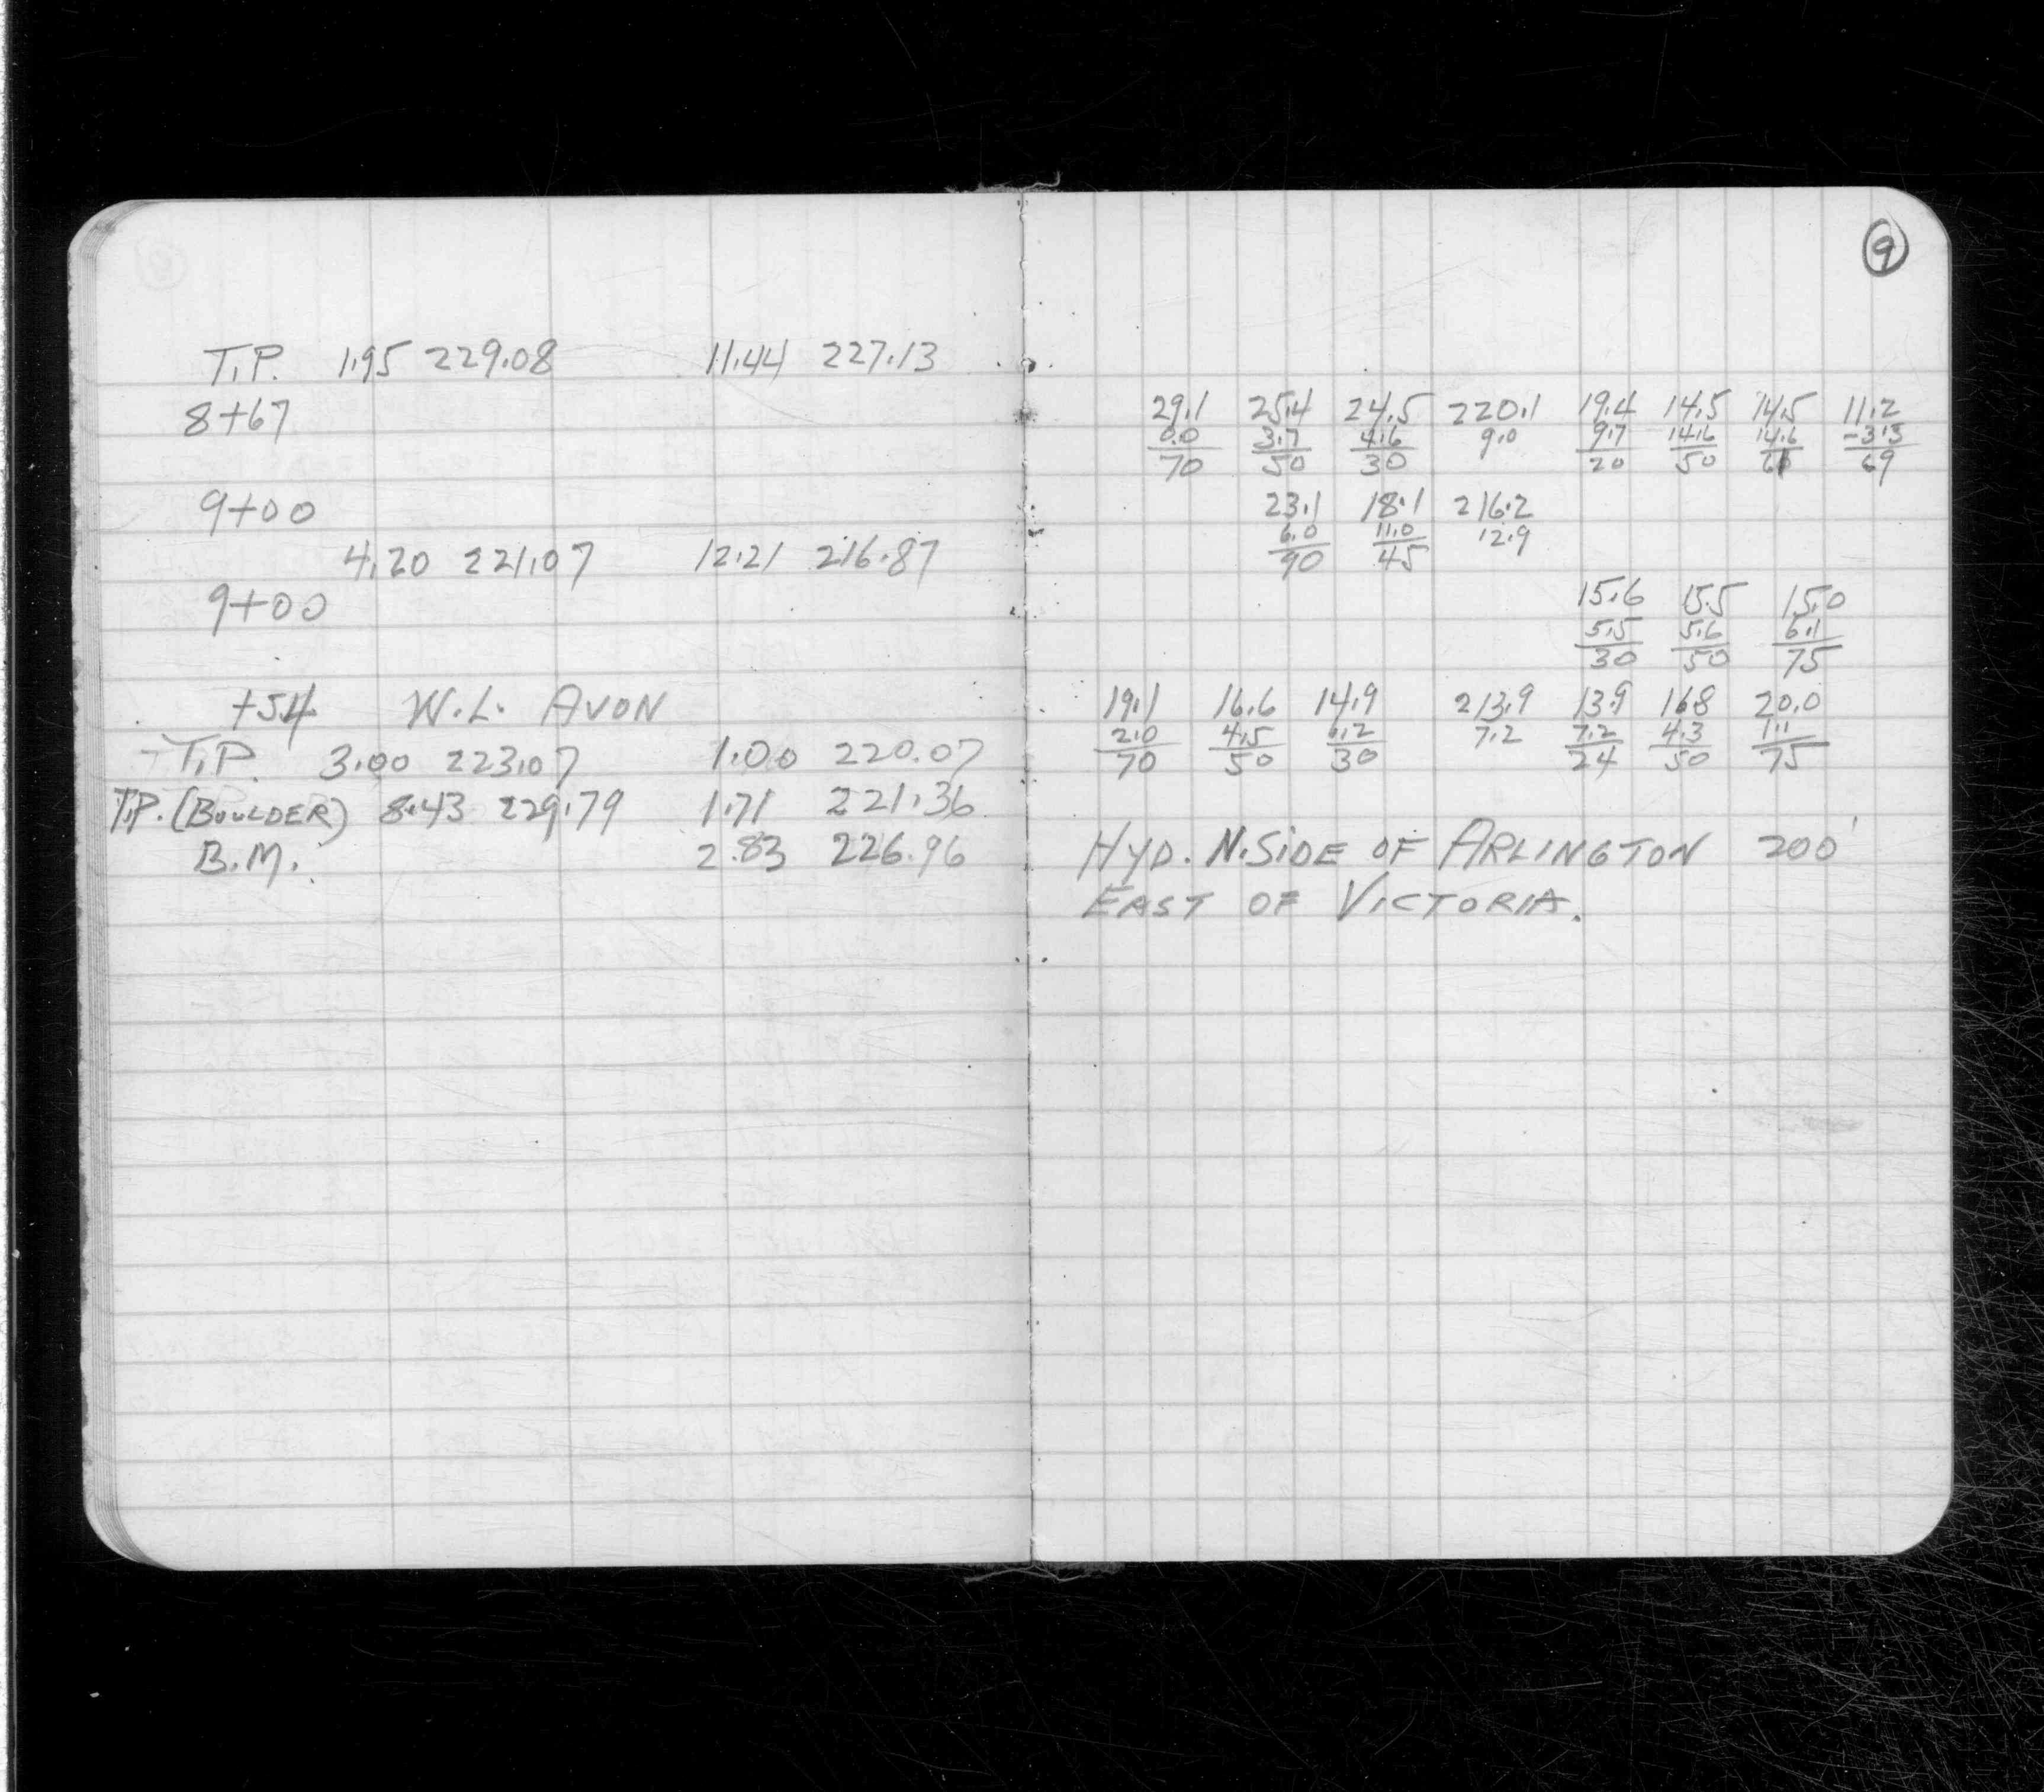 9
T.P. 1.95 229.08 11.44 227.13
8+67 29.1 25.4 24.5 220.1 19.4 14.5 14.5 11.2
0.0 3.7 4.6 9.0 9.7 14.6 14.6 -3.3
70 50 30 20 50 69
9+00 23.1 18.1 216.2
6.0 11.0 12.9
90 45
4.20 221.07 12.21 216.87
9+00 15.6 15.5 15.0
5.5 5.6 6.1
30 50 75
+54 W.L. AVON 19.1 16.6 14.9 213.9 13.9 16.8 20.0
2.0 4.5 6.2 7.2 7.2 4.3 1.1
70 50 30 24 50 75
T.P. 3.00 223.07 1.00 220.07
T.P. (BOULDER) 8.43 229.79 1.71 221.36
B.M. 2.83 226.96 HYD. N. SIDE OF ARLINGTON 200'
EAST OF VICTORIA.